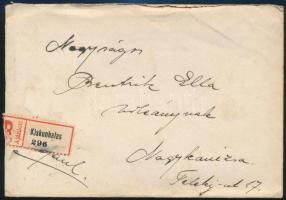 Nagyságos
Bentrik Ella
urleánynak
Nagykanizsa
Teleky-ut 17.
R
Ajánlás
Kiskunhalas
296